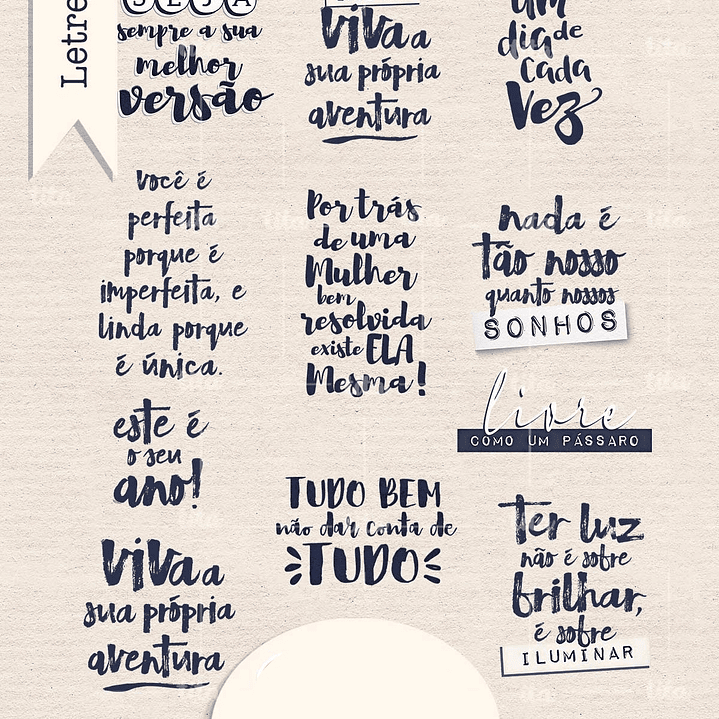 Letre
SEJA
sempre a sua
melhor
versão
Viva a
sua própria
aventura
um
dia de
cada
vez
Você é
perfeita
porque é
imperfeita, e
linda porque
é única.
Por trás
de uma
Mulher
bem
resolvida
existe ELA
Mesma!
nada é
tão nosso
quanto nossos
SONHOS
livre
COMO UM PÁSSARO
este é
o seu
ano!
TUDO BEM
não dar conta de
TUDO
Ter luz
não é sobre
brilhar,
é sobre
ILUMINAR
Viva a
sua própria
aventura